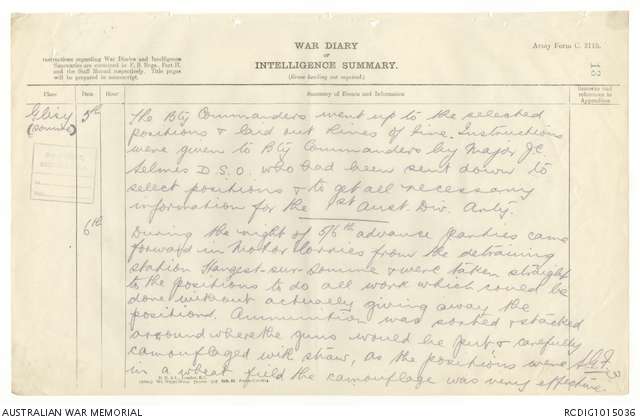 WAR DIARY
or
INTELLIGENCE SUMMARY.
(Erase heading not required.)
Army Form C. 2118.
Instructions regarding War Diaries and Intelligence
Summaries are contained in F. S. Regs., Part II.
and the Staff Manual respectively. Title pages
will be prepared in manuscript.
Place
Date
Hour
Summary of Events and Information
Remarks and
references to
Appendices
Glisy 5th The Bty Commanders went up to the selected
(Somme) positions & laid out lines of fire. Instructions
were given to Bty Commanders by Major J.C.
Selmes D.S.O. who had been sent down to
select positions & to get all necessary
information for the 1st Aust. Div. Arty.
6th During the night of 5/6th advance parties came
forward in Motor Lorries from the detraining
station Hangest-sur-Somme & were taken straight
to the positions to do all work which could be
done without actually giving away the
positions. Ammunition was sorted & stacked
around where the guns would be put & carefully
camouflaged with straw, as the positions were
in a wheat field the camouflage was very effective.
AUSTRALIAN WAR MEMORIAL
RCDIG1015036